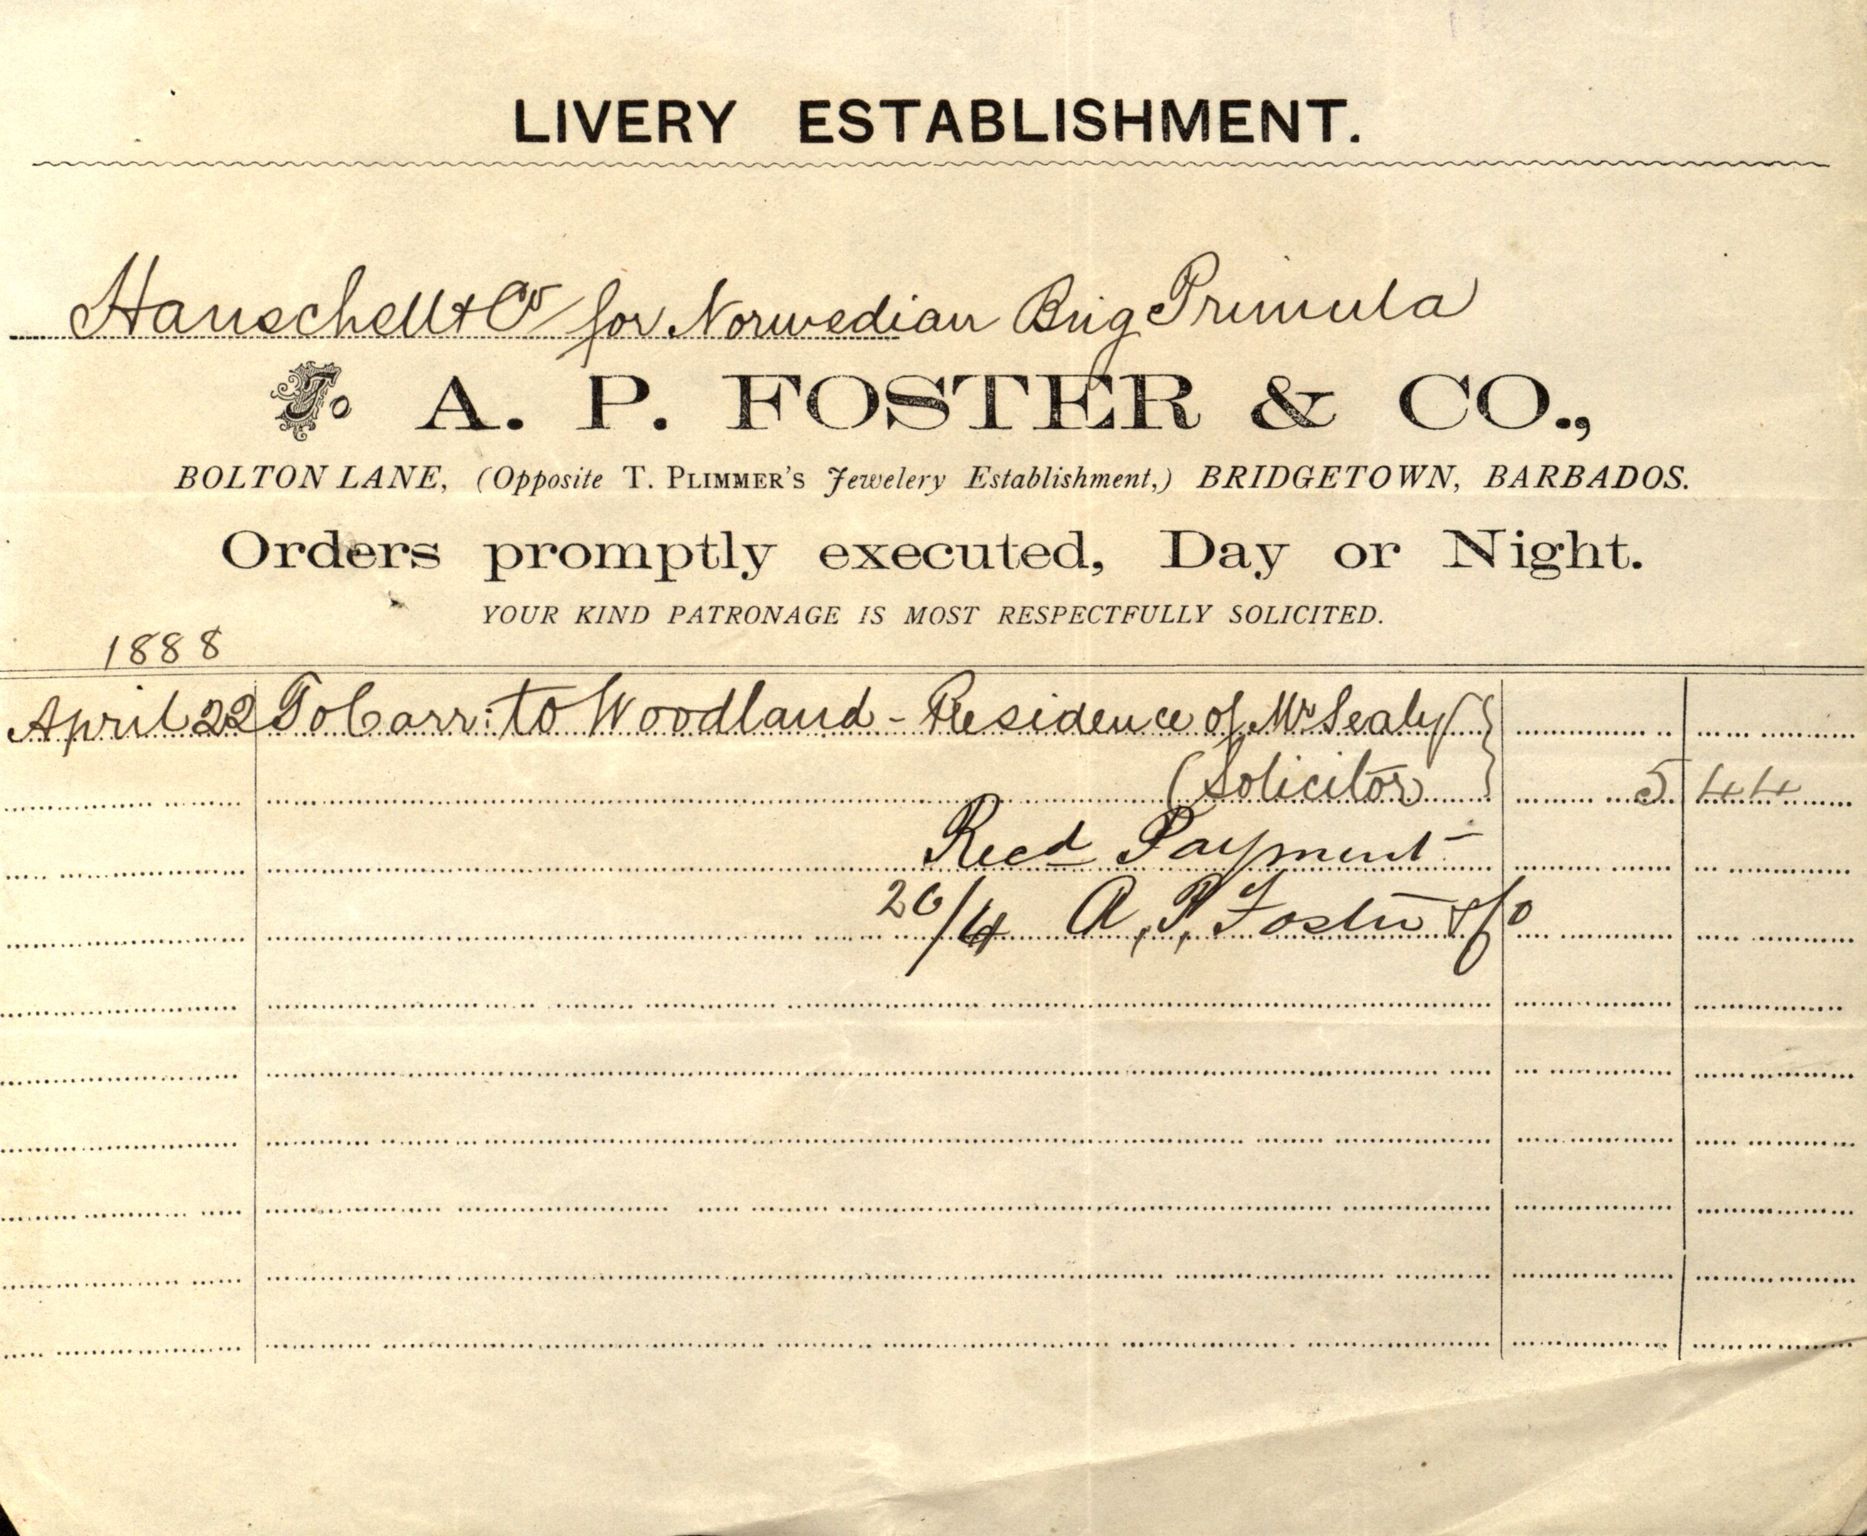 LIVERY ESTABLISHMENT.
Hanschell & Co for Norwedian Brig Primula
To A. P. FOSTER & CO.,
BOLTON LANE, (Opposite T. PLIMMER'S Jewelery Establishment,) BRIDGETOWN, BARBADOS.
Orders promptly executed, Day or Night.
YOUR KIND PATRONAGE IS MOST RESPECTFULLY SOLICITED.
1888
April 22 To Carr: to Woodland - Residence of Mr Sealy
(Solicitor 5 44
Recd Payment
26/4 A. P. Foster & Co